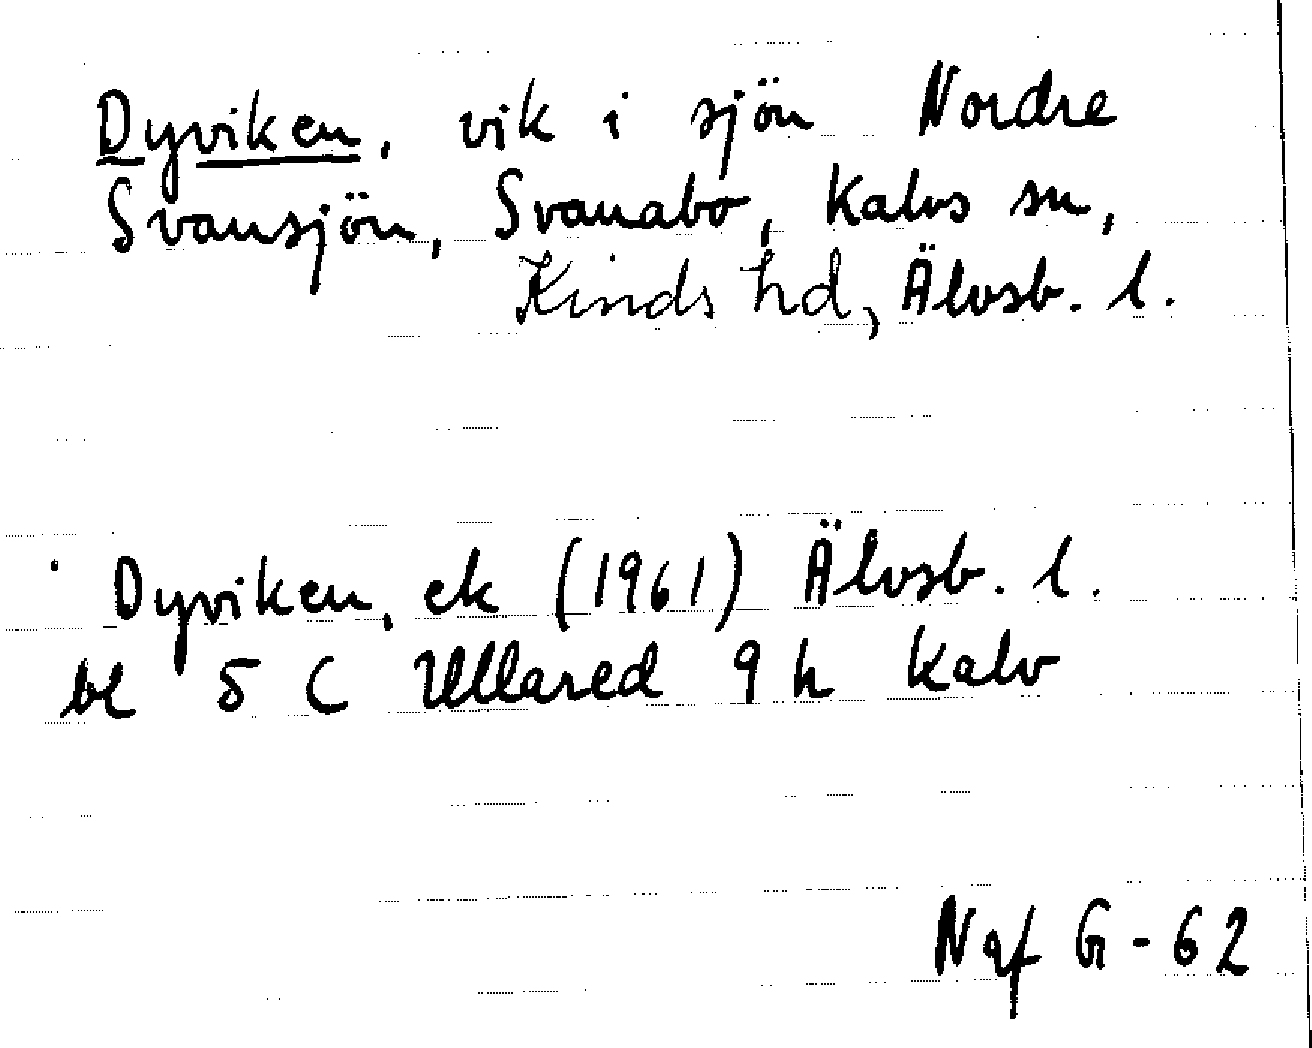 Dyviken, vik i sjön Nordre
Svansjön, Svanabo, Kalvs sn,
Kinds hd, Älvsb. l.
Dyviken, ek (1961) Älvsb. l.
bl 5 C Ullared 9 h Kalv
Naf G-62